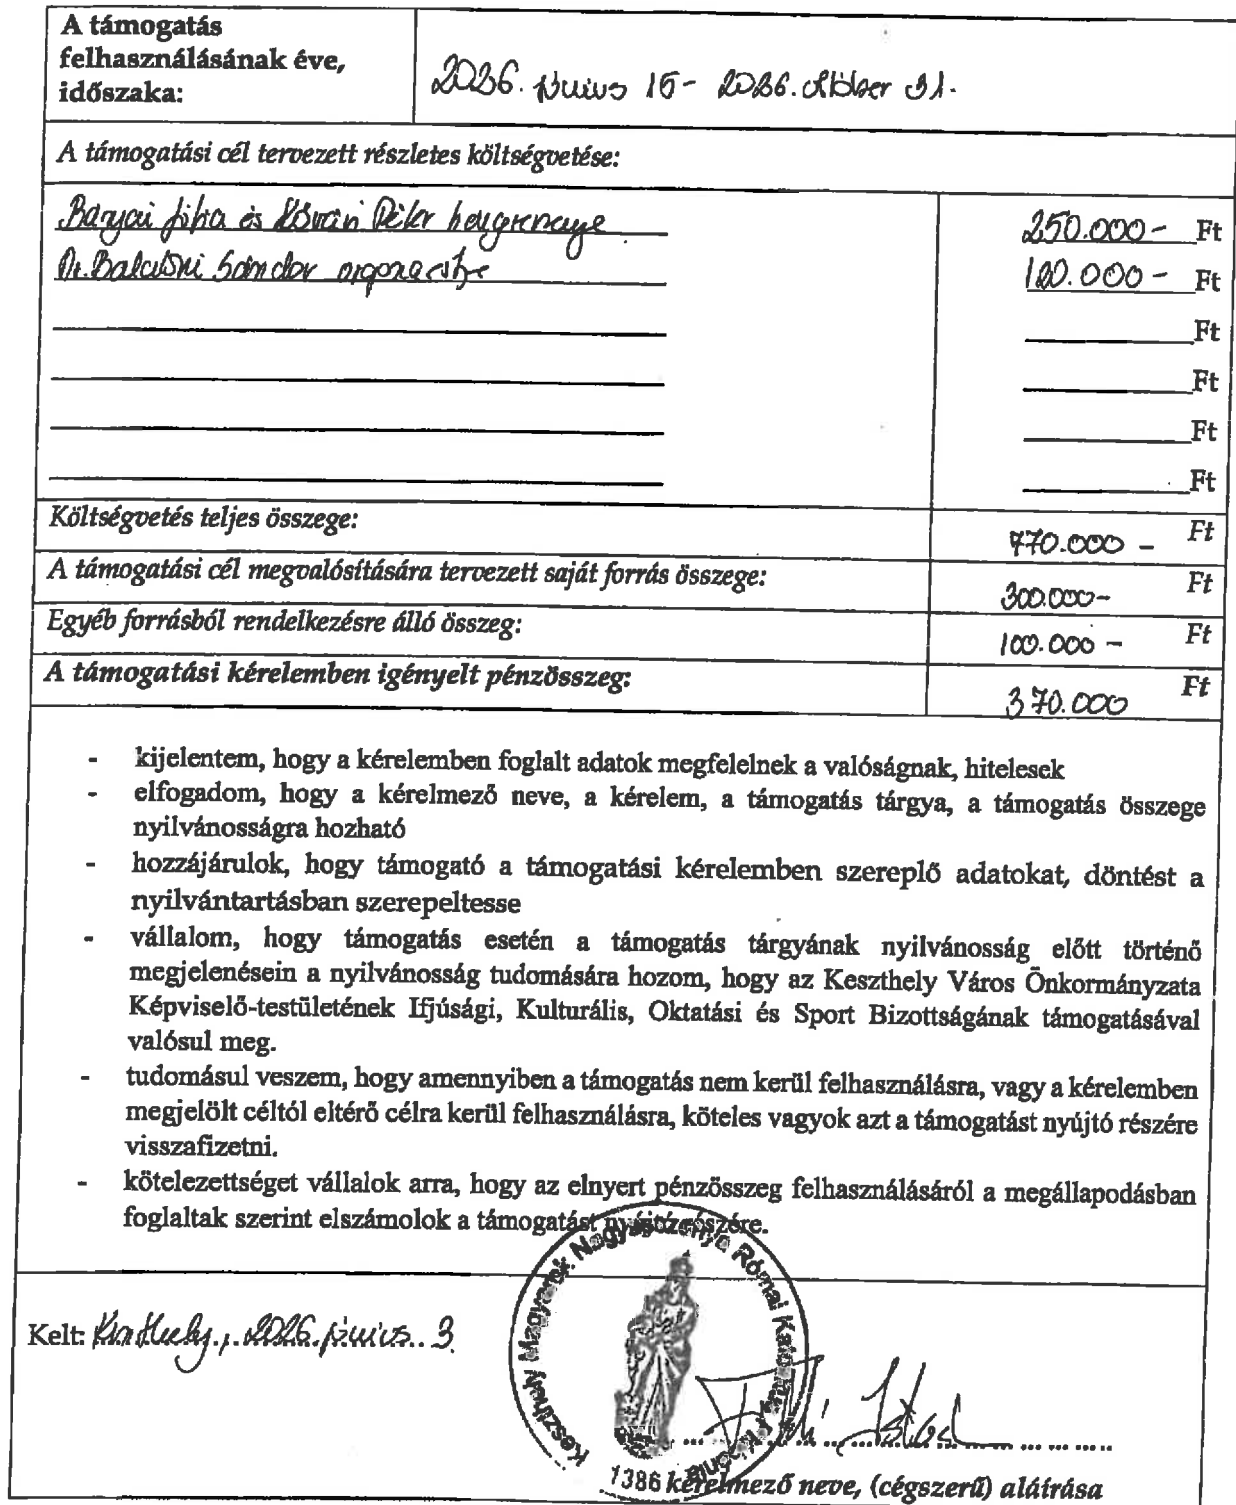 A támogatás
felhasználásának éve,
időszaka:
2026. június 15 - 2026. október 31.
A támogatási cél tervezett részletes költségvetése:
Bányai Júlia és Kővári Péter hangversenye
250.000 - Ft
Dr. Balatoni Sándor orgonaestje
120.000 - Ft
Ft
Ft
Ft
Ft
Költségvetés teljes összege:
770.000 - Ft
A támogatási cél megvalósítására tervezett saját forrás összege:
300.000 - Ft
Egyéb forrásból rendelkezésre álló összeg:
100.000 - Ft
A támogatási kérelemben igényelt pénzösszeg:
370.000 Ft
- kijelentem, hogy a kérelemben foglalt adatok megfelelnek a valóságnak, hitelesek
- elfogadom, hogy a kérelmező neve, a kérelem, a támogatás tárgya, a támogatás összege
nyilvánosságra hozható
- hozzájárulok, hogy támogató a támogatási kérelemben szereplő adatokat, döntést a
nyilvántartásban szerepeltesse
- vállalom, hogy támogatás esetén a támogatás tárgyának nyilvánosság előtt történő
megjelenésein a nyilvánosság tudomására hozom, hogy az Keszthely Város Önkormányzata
Képviselő-testületének Ifjúsági, Kulturális, Oktatási és Sport Bizottságának támogatásával
valósul meg.
- tudomásul veszem, hogy amennyiben a támogatás nem kerül felhasználásra, vagy a kérelemben
megjelölt céltól eltérő célra kerül felhasználásra, köteles vagyok azt a támogatást nyújtó részére
visszafizetni.
- kötelezettséget vállalok arra, hogy az elnyert pénzösszeg felhasználásáról a megállapodásban
foglaltak szerint elszámolok a támogatást nyújtó részére.
Keszthely Magyarok Nagyasszonya Római Katolikus Plébánia
1386
Kelt: Keszthely, 2026. június 3.
kérelmező neve, (cégszerű) aláírása